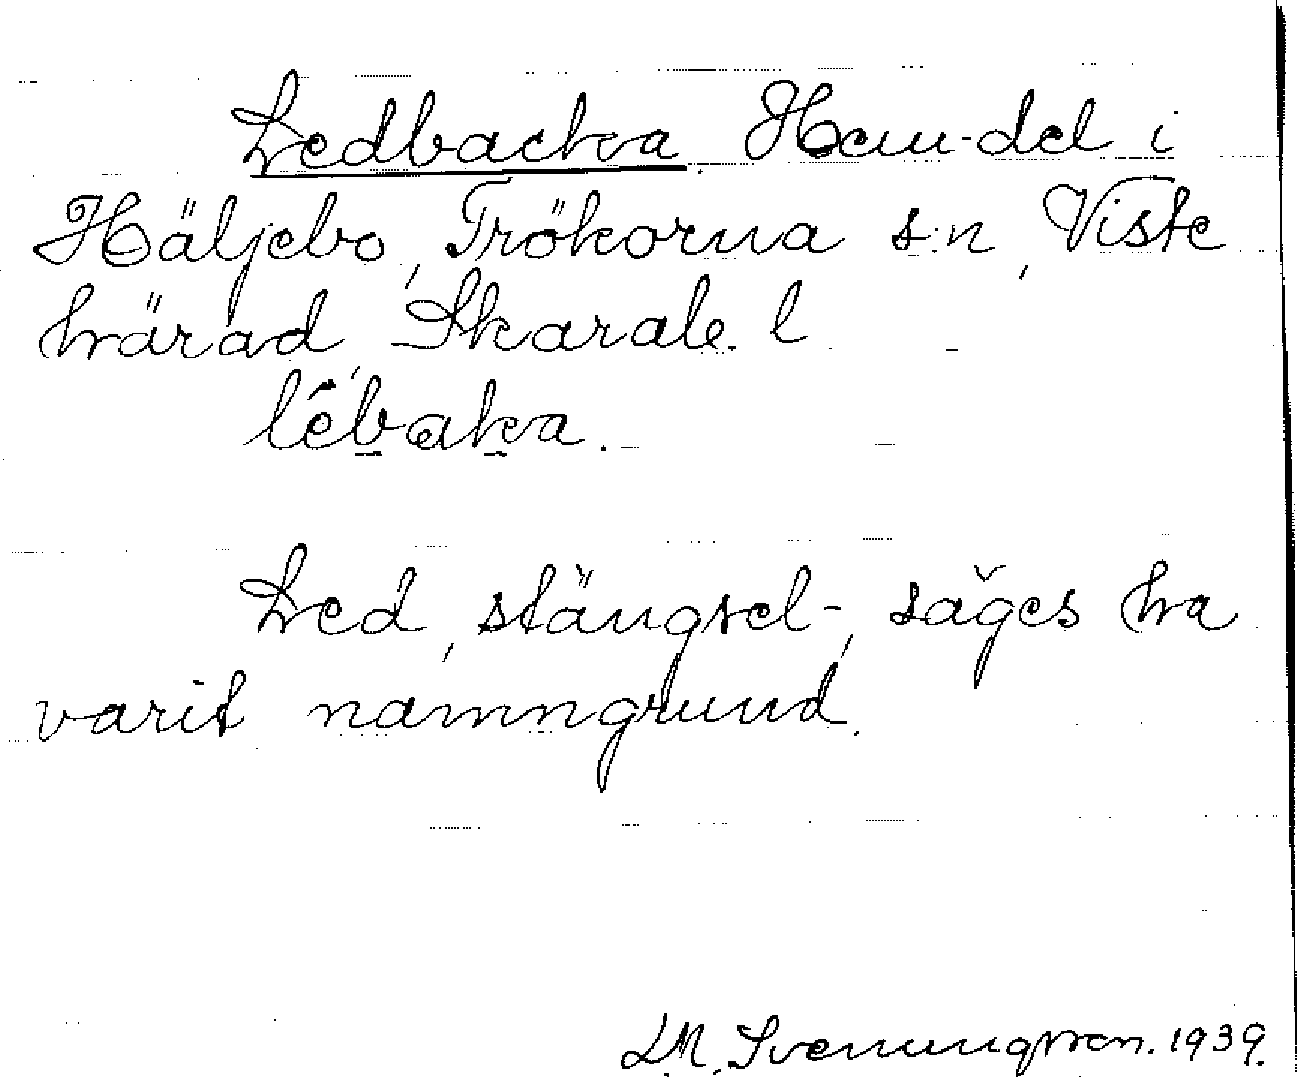 Ledbacka. Hem-del i
Häljebo, Trökörna s:n, Viste
härad, Skarab. l
lébaka.
Led, stängsel-, säges ha
varit namngrund.
L.M. Svenungsson. 1939.